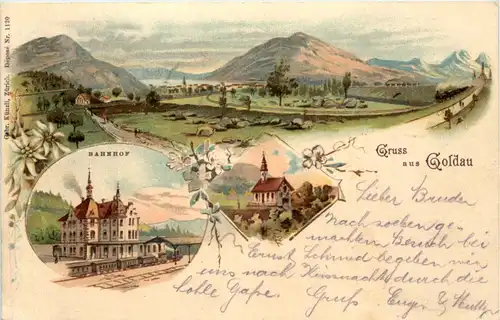 Gebr. Künzli, Zürich. Deposé Nr. 1120
BAHNHOF
Gruss
aus Goldau
Lieber Bruder
Nach soeben ge-
machtem Besuch bei
Ernst Schmid begeben wir
uns nach Küssnacht durch die
hohle Gasse. Gruss